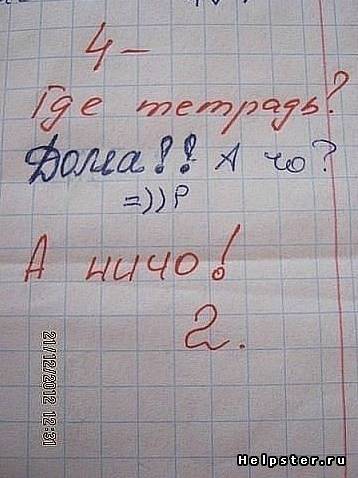 4-
Где тетрадь?
Дома!! А чо?
=))Р
А ничо!
2.
21/12/2012 12:31
Helpster.ru